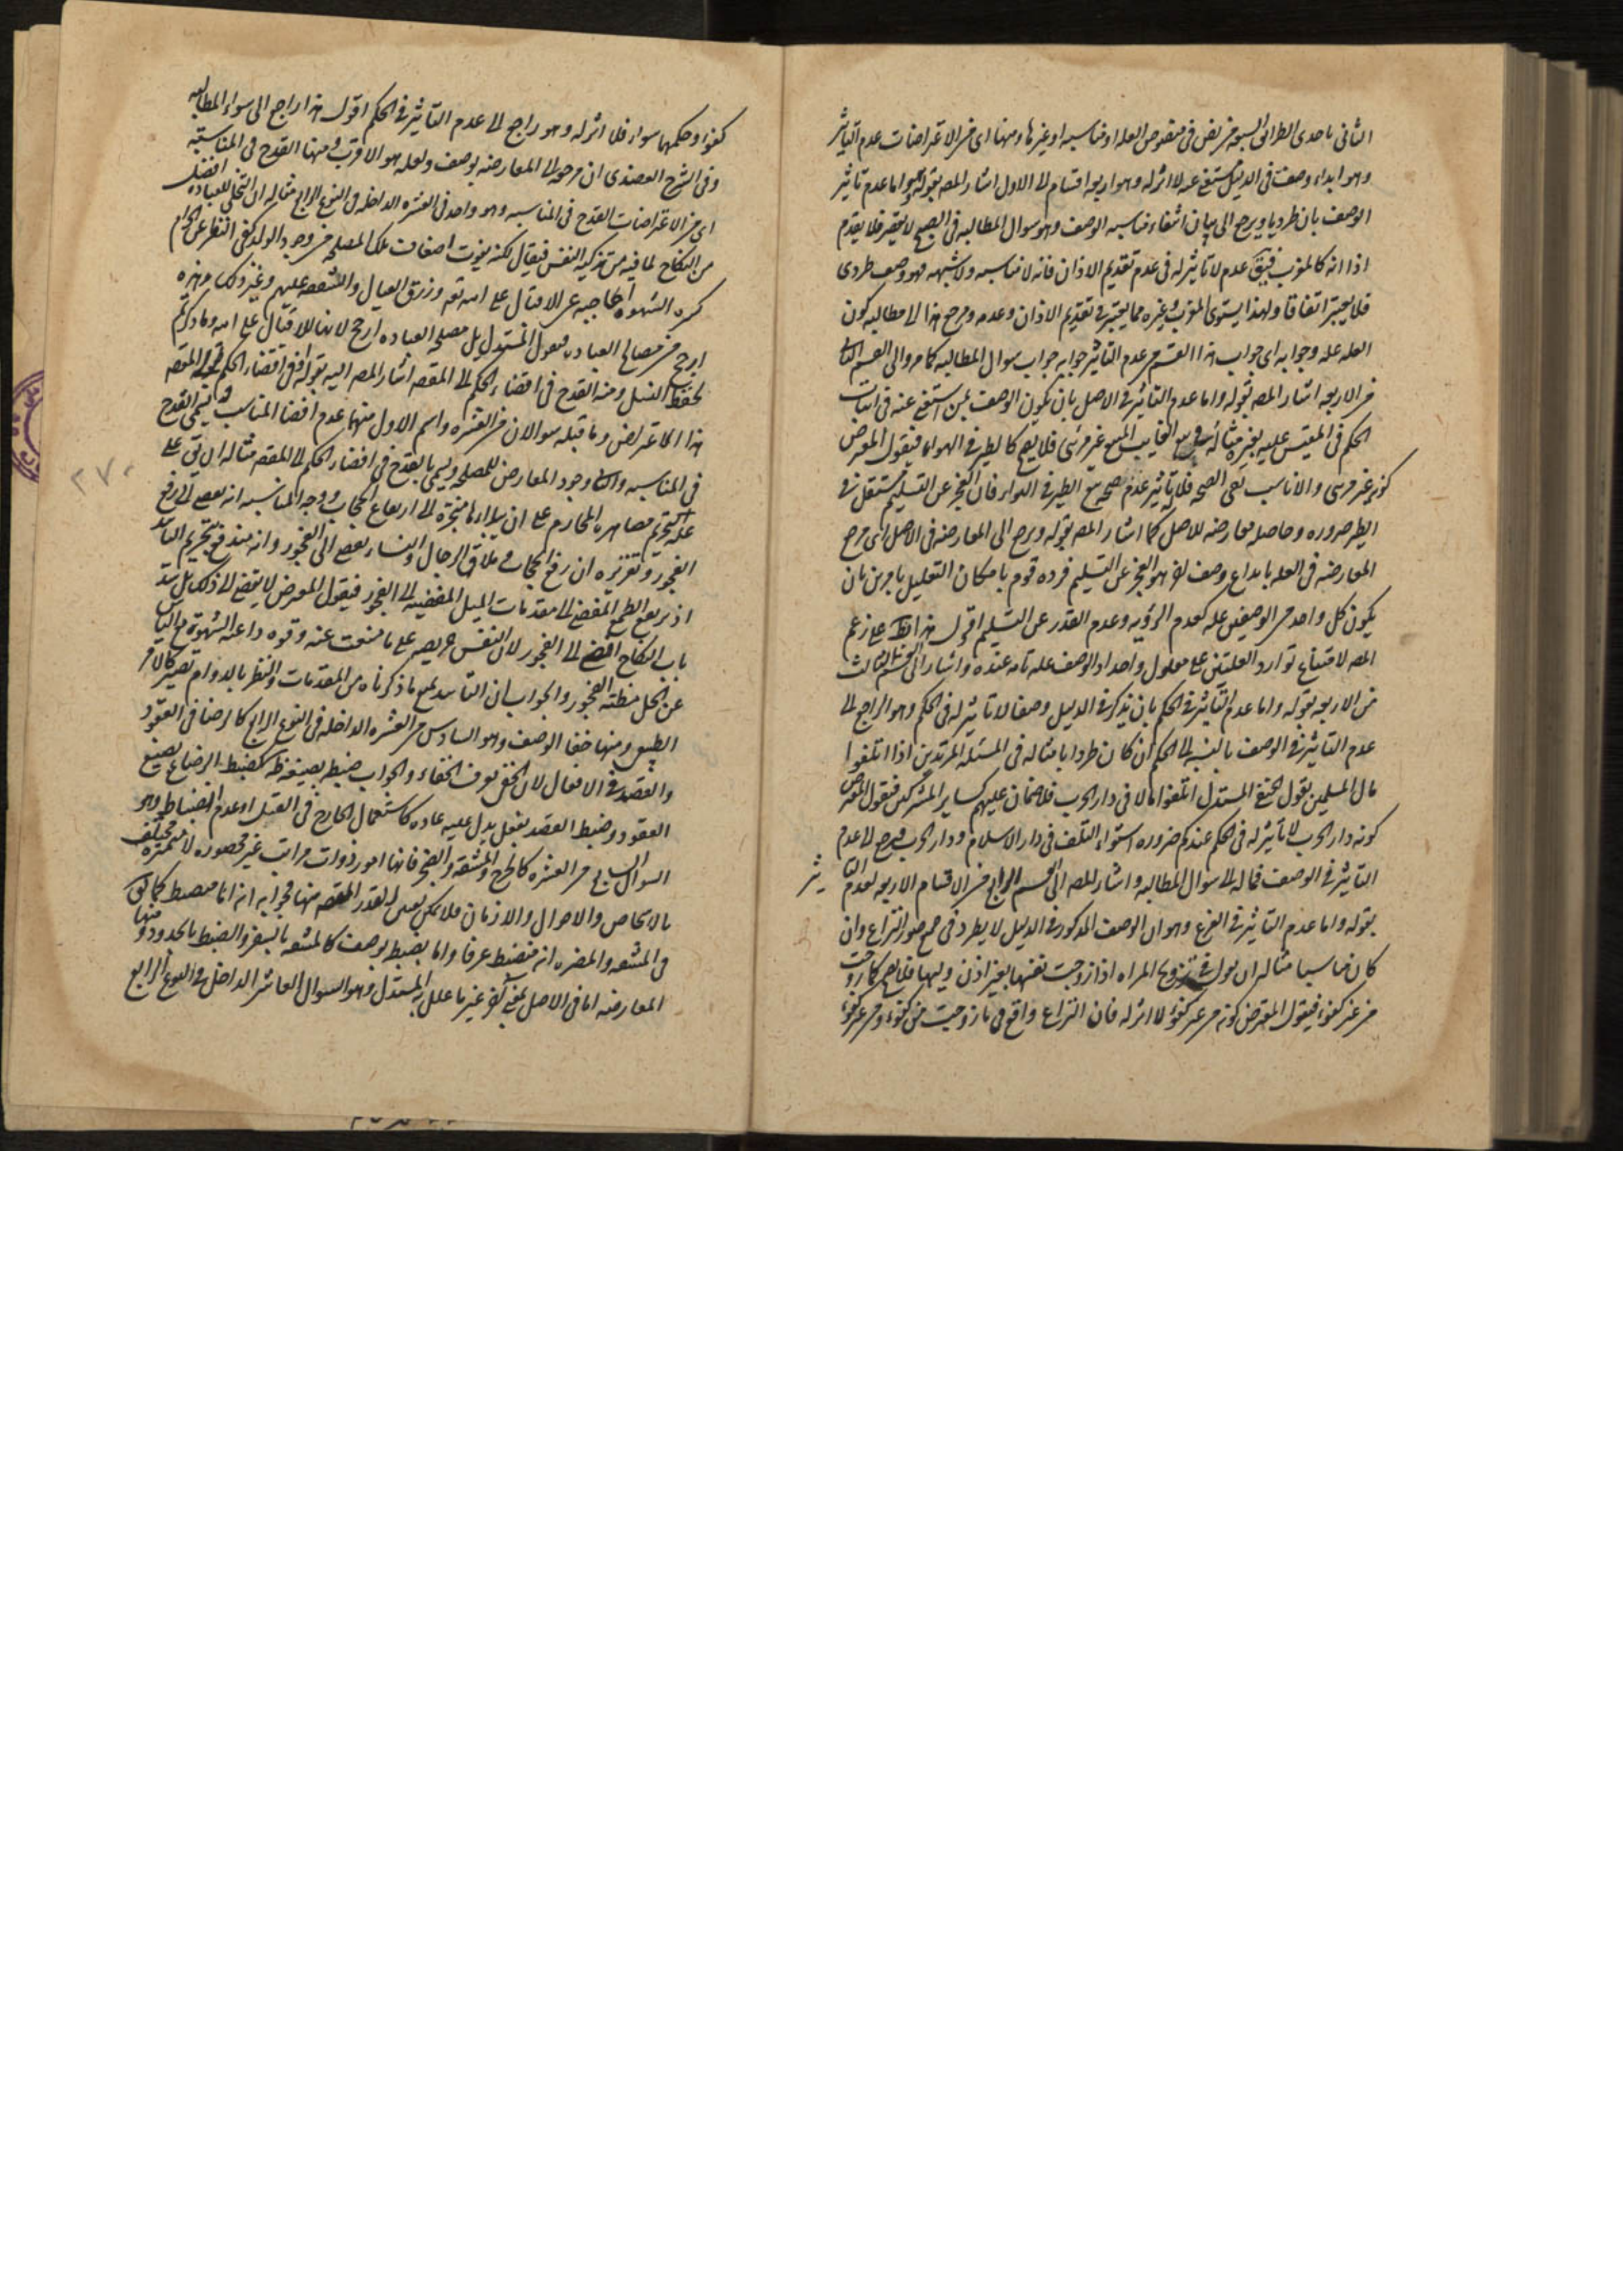 الثانى باحدى الطرائق السبعه من نص فى منصوص العله او مناسبه او غيرها ومنها اى من الاعتراضات عدم التاثير
وهو ابداء وصف فى الدليل مستغنى عنه لا اثر له وهو اربعه اقسام الى الاول اشار المصه بقوله وهو اما عدم تاثير
الوصف بان طرديا ويرجع الى بيان انتفاء مناسبه الوصف وهو سوال المطالبه فى الصبح لا يقصر فلا يقدم
اذا انه كالمغرب فيبقى عدم لا تاثير له فى عدم تقديم الاذان فانه لا مناسبه ولا شبهه فهو وصف طردى
فلا يعتبر اتفاقا ولهذا يستوى المغرب وغيره مما يعتبر فى تقديم الاذان وعدمه ومرجع هذا الى مطالبه كون
العله عله وجوابه اى جواب هذا القسم من عدم التاثير جوابه جواب سوال المطالبه كما مر والى القسم الثانى
من الاربعه اشار المصه بقوله واما عدم التاثير فى الاصل بان يكون الوصف استغنى عنه فى اثبات
الحكم فى المقيس عليه بغيره مثاله فى بيع الغايب المبيع غير مرئى فلا يصح كالطير فى الهواء فيقول المعترض
كونه غير مرئى والا ناسب نفى الصحه فلا تاثير له عدم صحه بيع الطير فى الهواء فان العجز عن التسليم مستقل فى
الطير ضروره وحاصله معارضه للاصل كما اشار المصه بقوله ويرجع الى المعارضه فى الاصل اى مرجع
المعارضه فى العله بابداع وصف اخر هو العجز عن التسليم فرده قوم بامكان التعليل بامرين بان
يكون كل واحد من الوصفين عله كعدم الرؤيه وعدم القدر عن التسليم اقول هذا ايضا على زعم
المصه لامتناع توارد العلتين على معلول واحد اذ الوصف عله تامه عنده واشار الى القسم الثالث
من الاربعه بقوله واما عدم التاثير فى الحكم بان يذكر فى الدليل وصفا لا تاثير له فى الحكم وهو الراجع الى
عدم التاثير فى الوصف بالنسبه الى الحكم ان كان طرديا مثاله فى المسئله المرتدين اذا اتلفوا
مال المسلمين يقول الحنفى المستدل اتلفوا مالا فى دار الحرب فلا ضمان عليهم كساير المشركين فيقول المعترض
كونه دار الحرب لا تاثير له فى الحكم عندكم ضروره استواء التلف فى دار الاسلام ودار الحرب فيرجع الى عدم
التاثير فى الوصف فماله الى سوال المطالبه واشار المصه الى القسم الرابع من الاقسام الاربعه لعدم التاثير
بقوله واما عدم التاثير فى الفرع وهو ان الوصف المذكور فى الدليل لا يطرد فى جميع صور النزاع وان
كان مناسبا مثاله ان يقول فى تزويج المراه اذا زوجت نفسها بغير اذن وليها فلا يصح كما زوجت
من غير كفوء فيقول المعترض كونه من غير كفوء لا اثر له فان النزاع واقع فى ما زوجت من كفوء ومن غير كفوء
كفوء وحكمهما سواء فلا اثر له وهو راجع الى عدم التاثير فى الحكم اقول هذا راجع الى سواء المطالبه
وفى الشرح العضدى ان مرجعه الى المعارضه بوصف ولعله هو الاقرب ومنها القدح فى المناسبه
اى من الاعتراضات القدح فى المناسبه وهو واحد فى العشره الداخله فى النوع الرابع مثاله ان التخلى للعباده افضل
من النكاح لما فيه من تزكيه النفس فيقال لكنه يفوت اضعاف تلك المصلحه من وجود الولد كف النظر عن الحرام
كسر الشهوه الحاجبه عن الاقبال على الله تعه ورزق العيال والشفقه عليهم وغير ذلك وهذه
ارجح من مصالح العباده فيقول المستدل بل مصلحه العباده ارجح لانها للاقبال على الله وما ذكرتم
لحفظ النسل ومنه القدح فى افضاء الحكم الى المقصه اشار المصه اليه بقوله افضاء الحكم الى المقصه
هذا الاعتراض وما قبله سوالان من العشره واسم الاول منهما عدم افضا المناسب ويسمى القدح
فى المناسبه والثانى وجود المعارض للمصلحه ويسمى بالقدح فى افضاء الحكم الى المقصه مثاله ان يق على
عله تحريم مصاهره المحارم على التابيد انها محتاجه الى ارتفاع الحجاب ووجه المناسبه انه يفضى الى رفع
الفجور وتقريره ان رفع الحجاب وتلاقى الرجال والنساء يفضى الى الفجور وانه يندفع بتحريم التابيد
اذ يرتفع الطمع المفضى الى مقدمات الميل المفضيه الى الفجور فيقول المعترض لا يفضى الى ذلك بل سد
باب النكاح افضى الى الفجور لان النفس حريصه على ما منعت عنه وقوه داعيه الشهوة مع الياس
عن الحل مظنه الفجور والجواب ان التابيد يمنع ما ذكرناه من المقدمات والنظر بالدوام يصير كالامر
الطبيعى ومنها خفا الوصف وهو السادس من العشره الداخله فى النوع الرابع كالرضا فى العقود
والقصد فى الافعال لان الخفى لا يعرف الخفاء والجواب ضبطه بصيغه ظه كضبط الرضا بصيغ
العقود وضبط القصد بفعل يدل عليه عاده كاستعمال الجارح فى القتل او عدم انضباطه وهو
السوال السابع من العشره كالحرج والمشقه والزجر فانها امور ذوات مراتب غير محصوره لا متميزه مختلف
بالاشخاص والاحوال والازمان فلا يمكن تعيين القدر المقصه منها فجوابه انه اما منضبط كما يق
فى المشقه والمضره انه منضبط عرفا واما يضبط بوصف كالمشقه بالسفر والضبط بالحدود ومنها
المعارضه اما فى الاصل بمعنى اخر غير ما علل به المستدل وهو السوال العاشر الداخل فى النوع الرابع